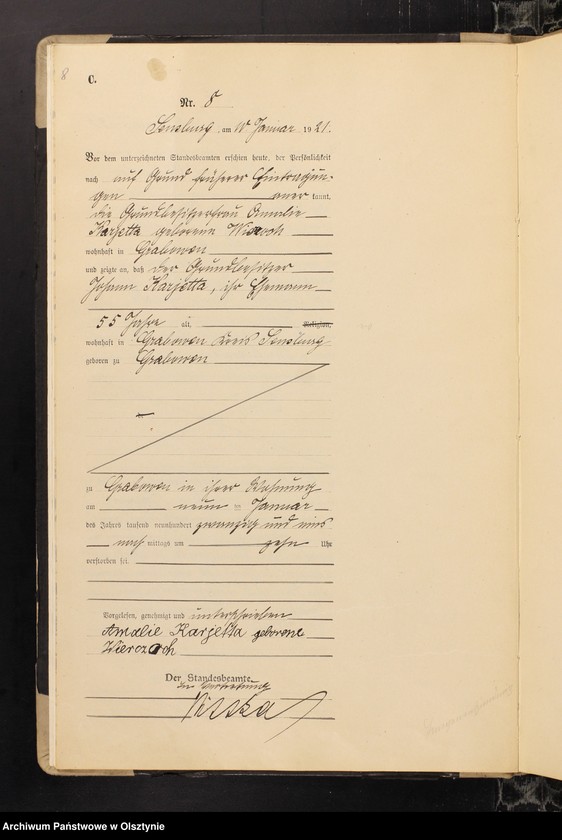 8
C.
Nr. 8
Sensburg, am 10 Januar 1921.
Vor dem unterzeichneten Standesbeamten erschien heute, der Persönlichkeit
nach auf Grund früherer Eintragun-
gen anerkannt,
die Grundbesitzerfrau Amalie
Karjetta geborene
wohnhaft in Grabowen
und zeigte an, daß der Grundbesitzer
Johann Karjetta, ihr Ehemann
55 Jahre alt, Religion,
wohnhaft in Grabowen Kreis Sensburg
geboren zu Grabowen
zu Grabowen in ihrer Wohnung
am neun ten Januar
des Jahres tausend neunhundert zwanzig und eins
nach mittags um zehn Uhr
verstorben sei.
Vorgelesen, genehmigt und unterschrieben
Amalie Karjetta geborene
Wierczoch
Der Standesbeamte.
In Vertretung
Archiwum Państwowe w Olsztynie